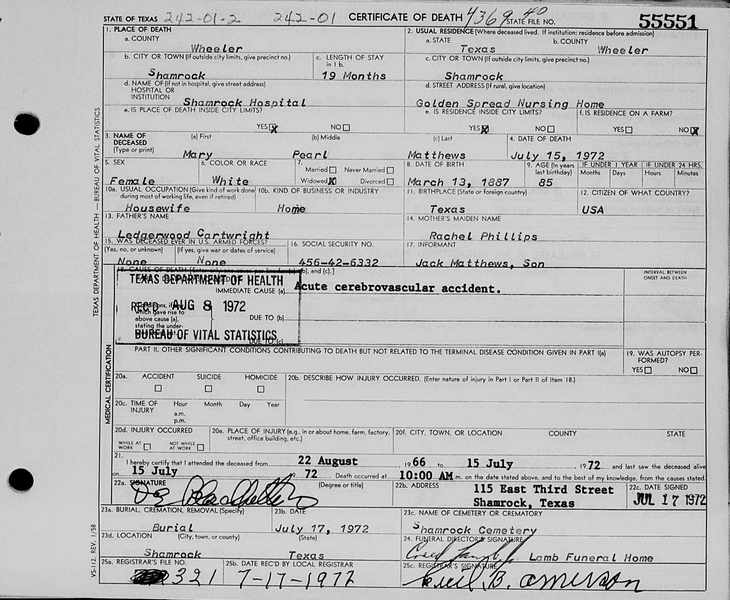 STATE OF TEXAS 242-01-2 242-01 CERTIFICATE OF DEATH 4369 40 STATE FILE NO. 55551
1. PLACE OF DEATH
a. COUNTY
Wheeler
2. USUAL RESIDENCE (Where deceased lived. If institution: residence before admission)
a. STATE b. COUNTY
Texas Wheeler
b. CITY OR TOWN (If outside city limits, give precinct no.) c. LENGTH OF STAY in 1 b.
Shamrock 19 Months
c. CITY OR TOWN (If outside city limits, give precinct no.)
Shamrock
d. NAME OF (If not in hospital, give street address) HOSPITAL OR INSTITUTION
Shamrock Hospital
d. STREET ADDRESS (If rural, give location)
Golden Spread Nursing Home
e. IS PLACE OF DEATH INSIDE CITY LIMITS?
YES X NO
e. IS RESIDENCE INSIDE CITY LIMITS? f. IS RESIDENCE ON A FARM?
YES X NO YES NO X
3. NAME OF DECEASED (Type or print) (a) First (b) Middle (c) Last 4. DATE OF DEATH
Mary Pearl Matthews July 15, 1972
5. SEX 6. COLOR OR RACE 7. Married Never Married Widowed X Divorced
Female White
8. DATE OF BIRTH 9. AGE (In years last birthday) IF UNDER 1 YEAR Months Days IF UNDER 24 HRS. Hours Minutes
March 13, 1887 85
10a. USUAL OCCUPATION (Give kind of work done during most of working life, even if retired) 10b. KIND OF BUSINESS OR INDUSTRY
Housewife Home
11. BIRTHPLACE (State or foreign country) 12. CITIZEN OF WHAT COUNTRY?
Texas USA
13. FATHER'S NAME
Ledgerwood Cartwright
14. MOTHER'S MAIDEN NAME
Rachel Phillips
15. WAS DECEASED EVER IN U.S. ARMED FORCES?
(Yes, no, or unknown) (If yes, give war or dates of service)
None None
16. SOCIAL SECURITY NO.
456-42-6332
17. INFORMANT
Jack Matthews, Son
18. CAUSE OF DEATH and (c).]
INTERVAL BETWEEN ONSET AND DEATH
TEXAS DEPARTMENT OF HEALTH
IMMEDIATE CAUSE (a) Acute cerebrovascular accident.
REC'D AUG 8 1972
which gave rise to above cause (a) stating the under-
DUE TO (b)
BUREAU OF VITAL STATISTICS
DUE TO (c)
PART II. OTHER SIGNIFICANT CONDITIONS CONTRIBUTING TO DEATH BUT NOT RELATED TO THE TERMINAL DISEASE CONDITION GIVEN IN PART I(a)
19. WAS AUTOPSY PERFORMED?
YES NO
20a. ACCIDENT SUICIDE HOMICIDE
20b. DESCRIBE HOW INJURY OCCURRED. (Enter nature of injury in Part I or Part II of item 18.)
20c. TIME OF INJURY Hour Month Day Year
a.m.
p.m.
20d. INJURY OCCURRED
WHILE AT WORK NOT WHILE AT WORK
20e. PLACE OF INJURY (e.g., in or about home, farm, factory, street, office building, etc.)
20f. CITY, TOWN, OR LOCATION COUNTY STATE
21. I hereby certify that I attended the deceased from 22 August 1966 to 15 July 1972 and last saw the deceased alive
on 15 July 1972 Death occurred at 10:00 AM m. on the date stated above, and to the best of my knowledge, from the causes stated.
22a. SIGNATURE (Degree or title)
22b. ADDRESS
115 East Third Street
Shamrock, Texas
22c. DATE SIGNED
JUL 17 1972
23a. BURIAL, CREMATION, REMOVAL (Specify) 23b. DATE
Burial July 17, 1972
23c. NAME OF CEMETERY OR CREMATORY
Shamrock Cemetery
23d. LOCATION (City, town, or county) (State)
Shamrock Texas
24. FUNERAL DIRECTOR'S SIGNATURE
Lamb Funeral Home
25a. REGISTRAR'S FILE NO. 25b. DATE REC'D BY LOCAL REGISTRAR
321 7-17-1972
25c. REGISTRAR'S SIGNATURE
Cecil B.
TEXAS DEPARTMENT OF HEALTH — BUREAU OF VITAL STATISTICS
MEDICAL CERTIFICATION
VS-112, REV. 1/58